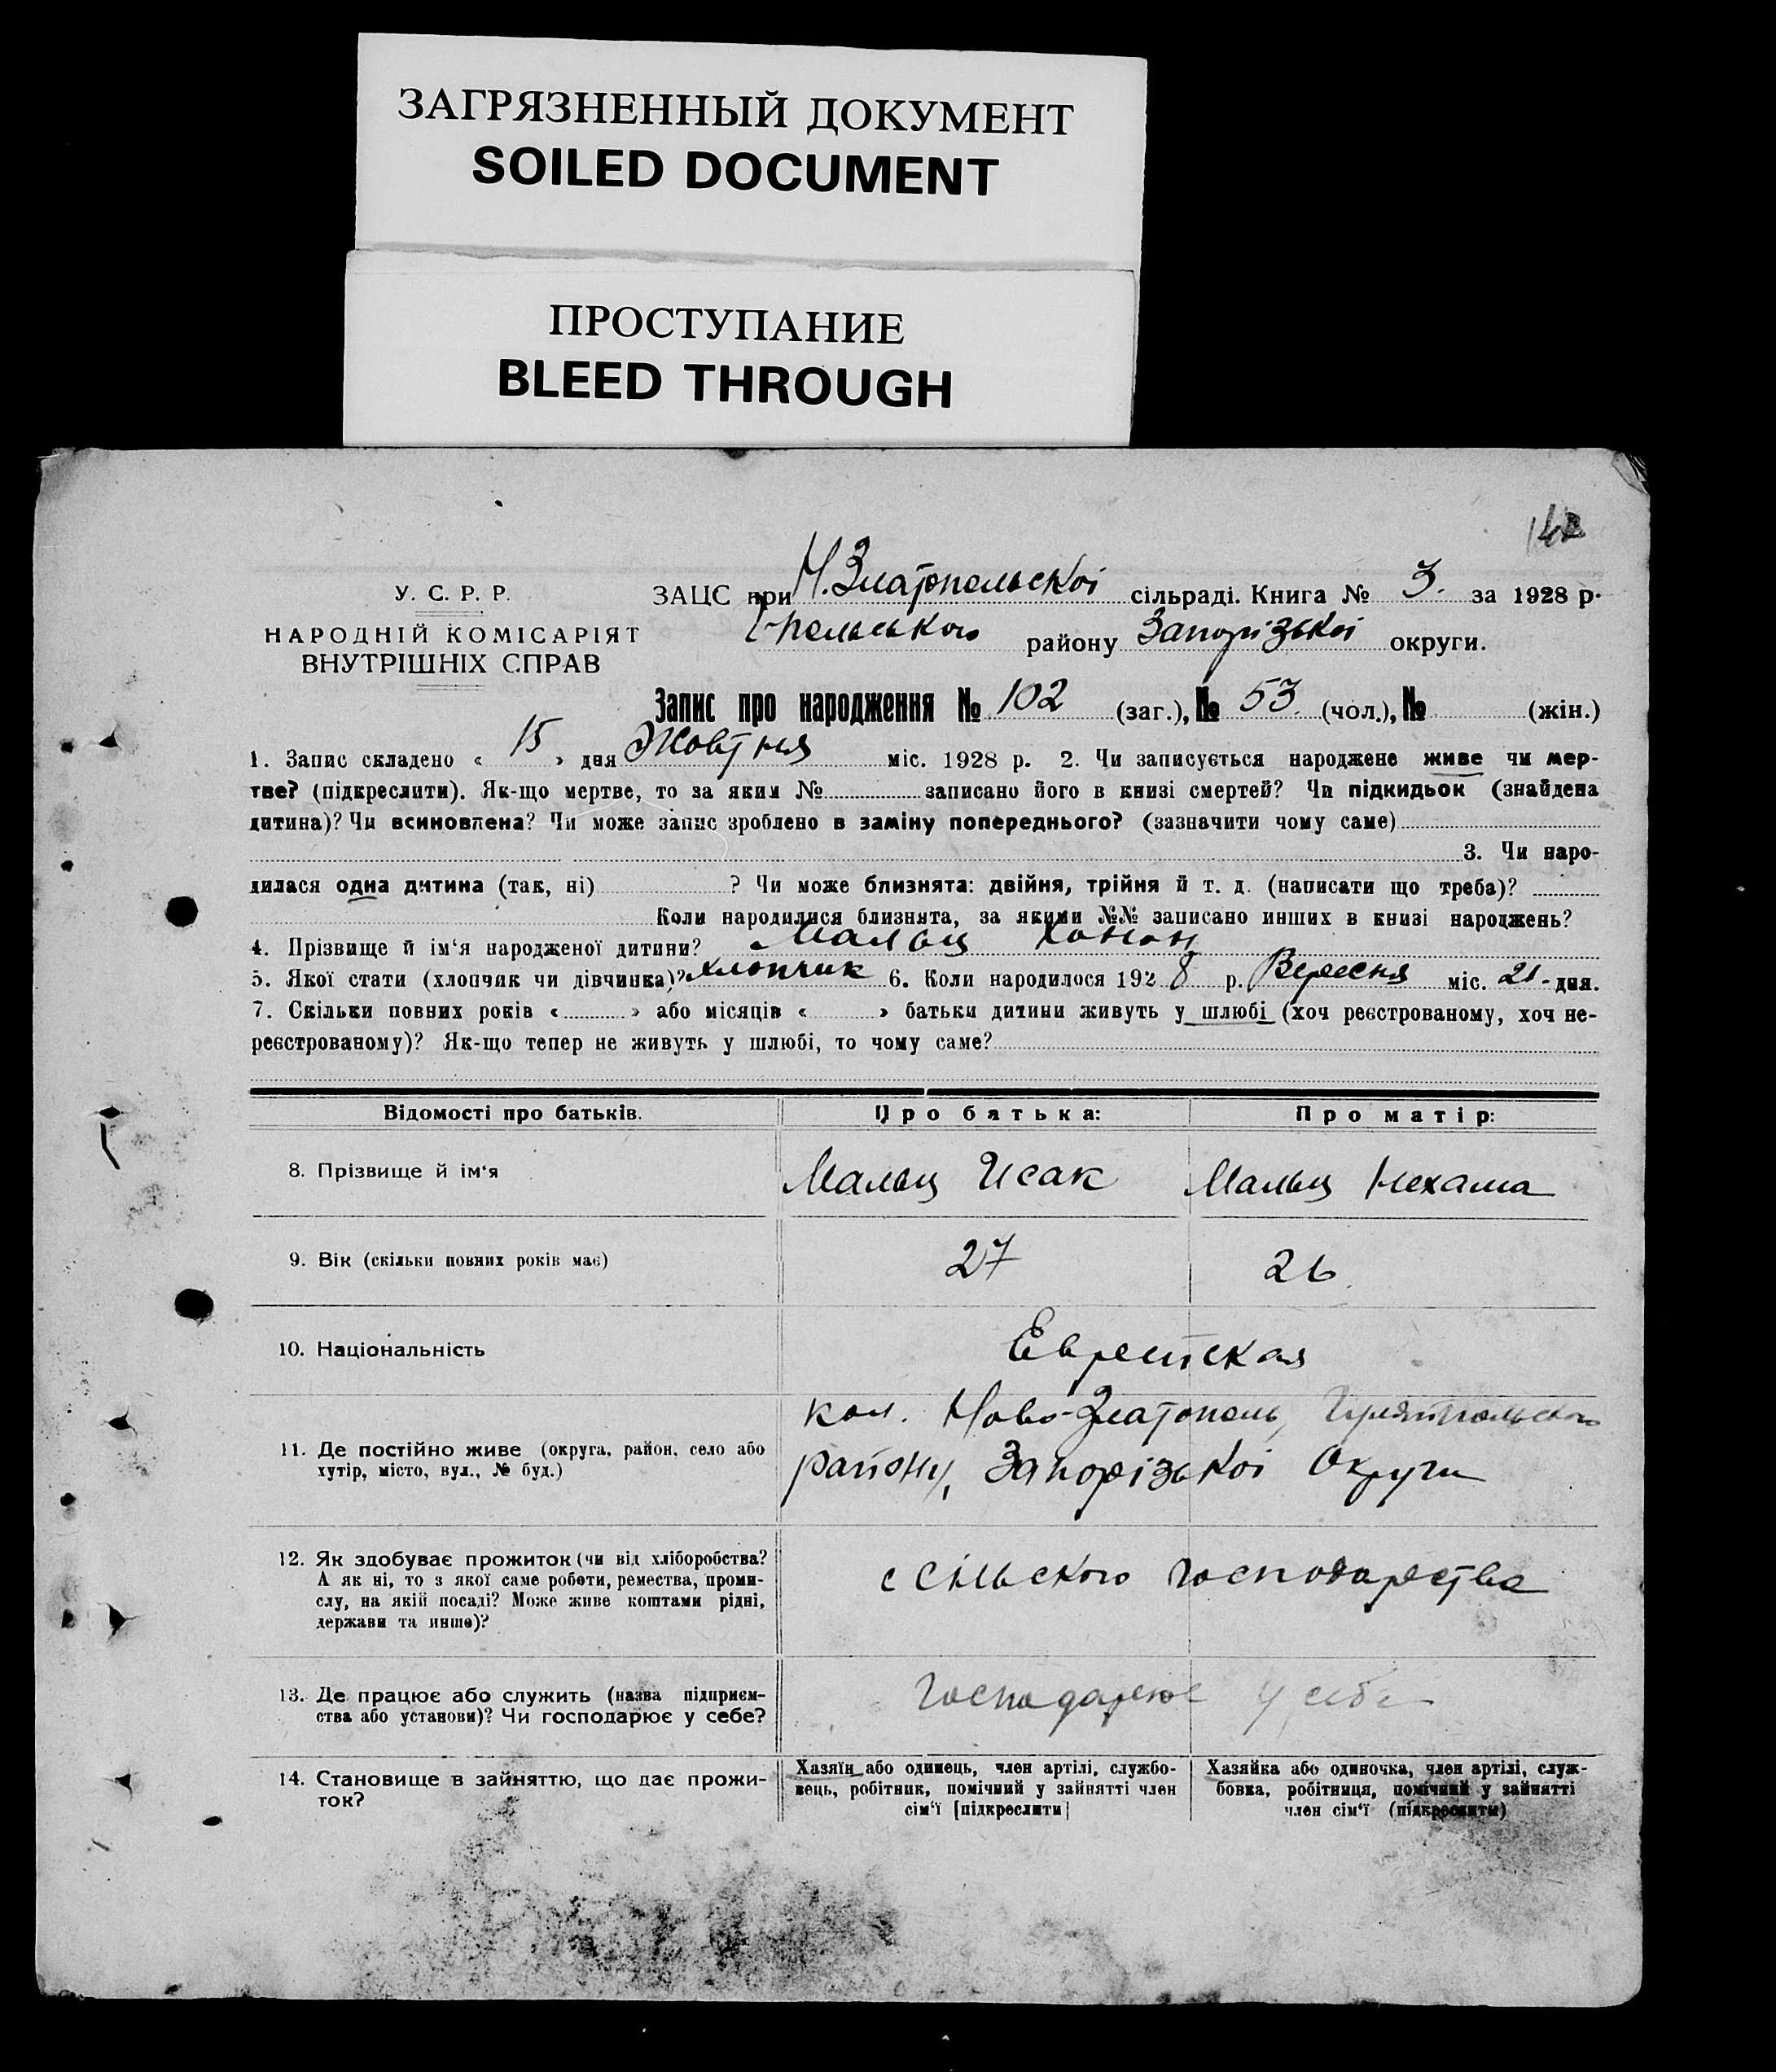 ЗАГРЯЗНЕННЫЙ ДОКУМЕНТ
SOILED DOCUMENT
ПРОСТУПАНИЕ
BLEED THROUGH
У. С. Р. Р.
НАРОДНІЙ КОМІСАРІЯТ
ВНУТРІШНІХ СПРАВ
ЗАЦС при Н.Златопольскоі сільраді. Книга № 3. за 1928 р.
Г-польського району Запорізькоі округи.
Запис про народження № 102 (заг.), № 53 (чол.), № (жін.)
1. Запис складено « 15 » дня Жовтня міс. 1928 р. 2. Чи записується народжене живе чи мер-
тве? (підкреслити). Як-що мертве, то за яким № записано його в книзі смертей? Чи підкидьок (знайдена
дитина)? Чи всиновлена? Чи може запис зроблено в заміну попереднього? (зазначити чому саме)
3. Чи наро-
дилася одна дитина (так, ні) ? Чи може близнята: двійня, трійня й т. д. (написати що треба)?
Коли народилися близнята, за якими №№ записано инших в книзі народжень?
4. Прізвище й ім‘я народженої дитини? Мальц Хонон
5. Якої стати (хлопчик чи дівчинка)? хлопчик 6. Коли народилося 1928 р. Вересня міс. 21 - дня.
7. Скільки повних років « » або місяців « » батьки дитини живуть у шлюбі (хоч реєстрованому, хоч не-
реєстрованому)? Як-що тепер не живуть у шлюбі, то чому саме?
Відомості про батьків. Про батька: Про матір:
8. Прізвище й ім‘я Мальц Исак Мальц Нехама
9. Вік (скільки повних років має) 27 26
10. Національність Еврейская
кол. Ново-Златополь,
11. Де постійно живе (округа, район, село або
хутір, місто, вул., № буд.) району, Запорізькоі Округи
12. Як здобуває прожиток (чи від хліборобства?
А як ні, то з якої саме роботи, ремества, проми-
слу, на якій посаді? Може живе коштами рідні,
держави та инше)? с сільского господарства
13. Де працює або служить (назва підприєм-
ства або установи)? Чи господарює у себе? Господарює у себе
14. Становище в зайняттю, що дає прожи-
ток?
Хазяїн або одинець, член артілі, службо-
вець, робітник, помічний у зайнятті член
сім‘ї [підкреслити]
Хазяйка або одиночка, член артілі, служ-
бовка, робітниця, помічний у зайнятті
член сім‘ї (підкреслити)